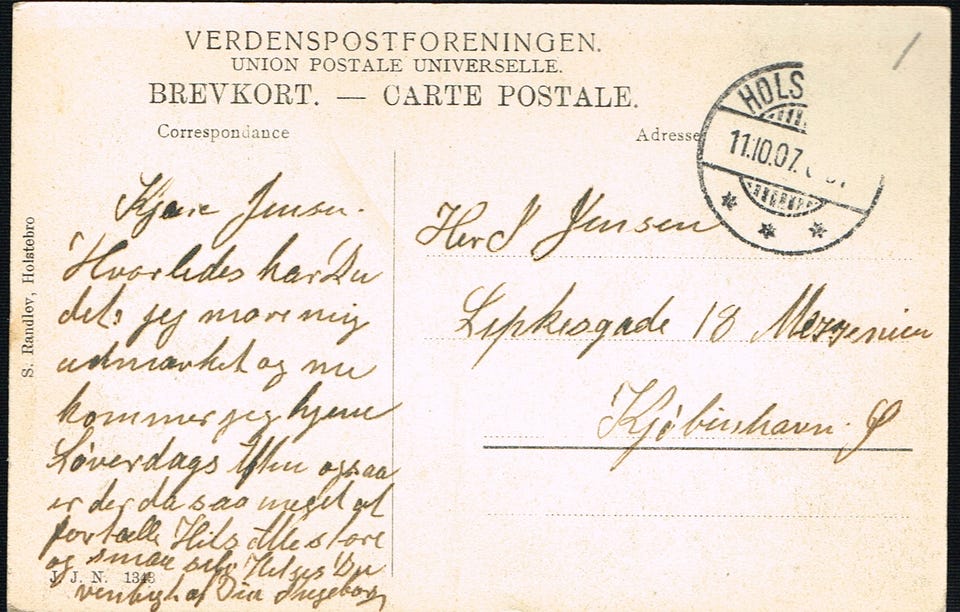 VERDENSPOSTFORENINGEN.
UNION POSTALE UNIVERSELLE.
BREVKORT. — CARTE POSTALE.
Correspondance
Adresse
HOLS
11.10.07.
S. Randlev, Holstebro
Kjære Jensen.
Hvorledes har Du
det, jeg morer mig
udmærket og nu
kommer jeg hjem
Løverdags Aften ogsaa
er der da saa meget at
fortælle Hils Alle store
og smaa selv Hilses Du
venligst af Din Ingeborg
J. J. N. 1343
Herr J Jensen
Lipkesgade 18 Mezzenien
Kjøbinhavn. Ø